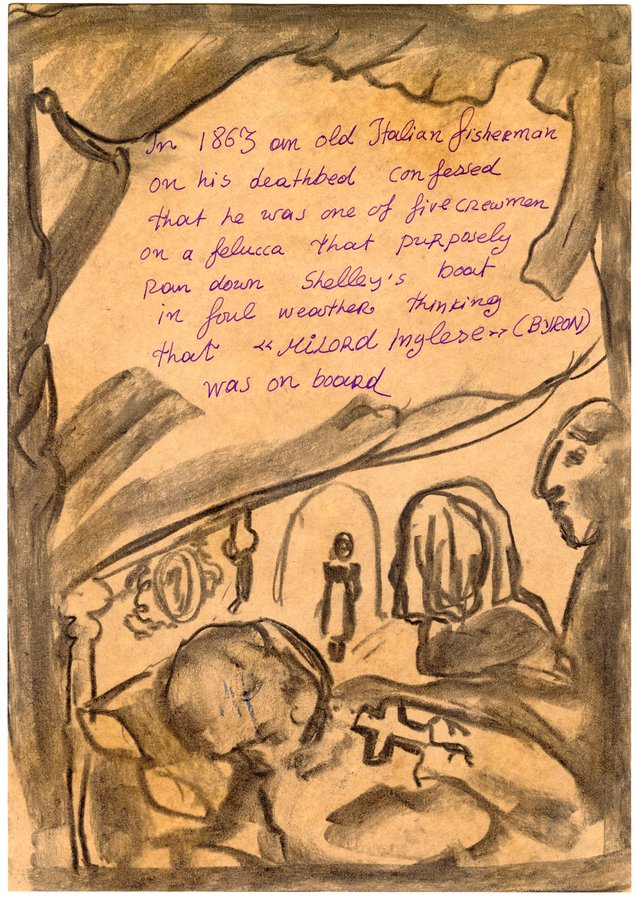 In 1863 an old Italian fisherman
on his deathbed confessed
that he was one of five crewmen
on a felucca that purposely
ran down Shelley's boat
in foul weather thinking
that «Milord Inglese» (BYRON)
was on board